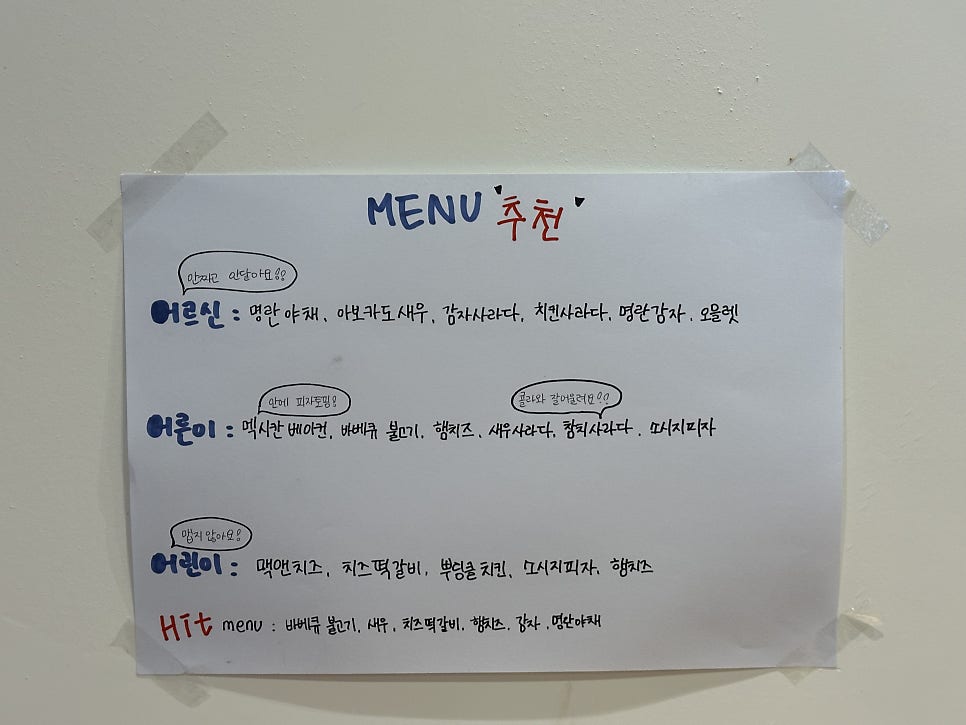 MENU '추천'
안짜고 안달아요!?
어르신 : 명란야채, 아보카도새우, 감자사라다, 치킨사라다, 명란감자, 오믈렛
안에 피자토핑!
콜라와 잘어울려요!?
어른이 : 멕시칸 베이컨, 바베큐 불고기, 햄치즈, 새우사라다, 참치사라다, 소시지피자
맵지않아요!
어린이 : 맥앤치즈, 치즈떡갈비, 뿌링클치킨, 소시지피자, 햄치즈
Hit menu : 바베큐 불고기, 새우, 치즈떡갈비, 햄치즈, 감자, 명란야채